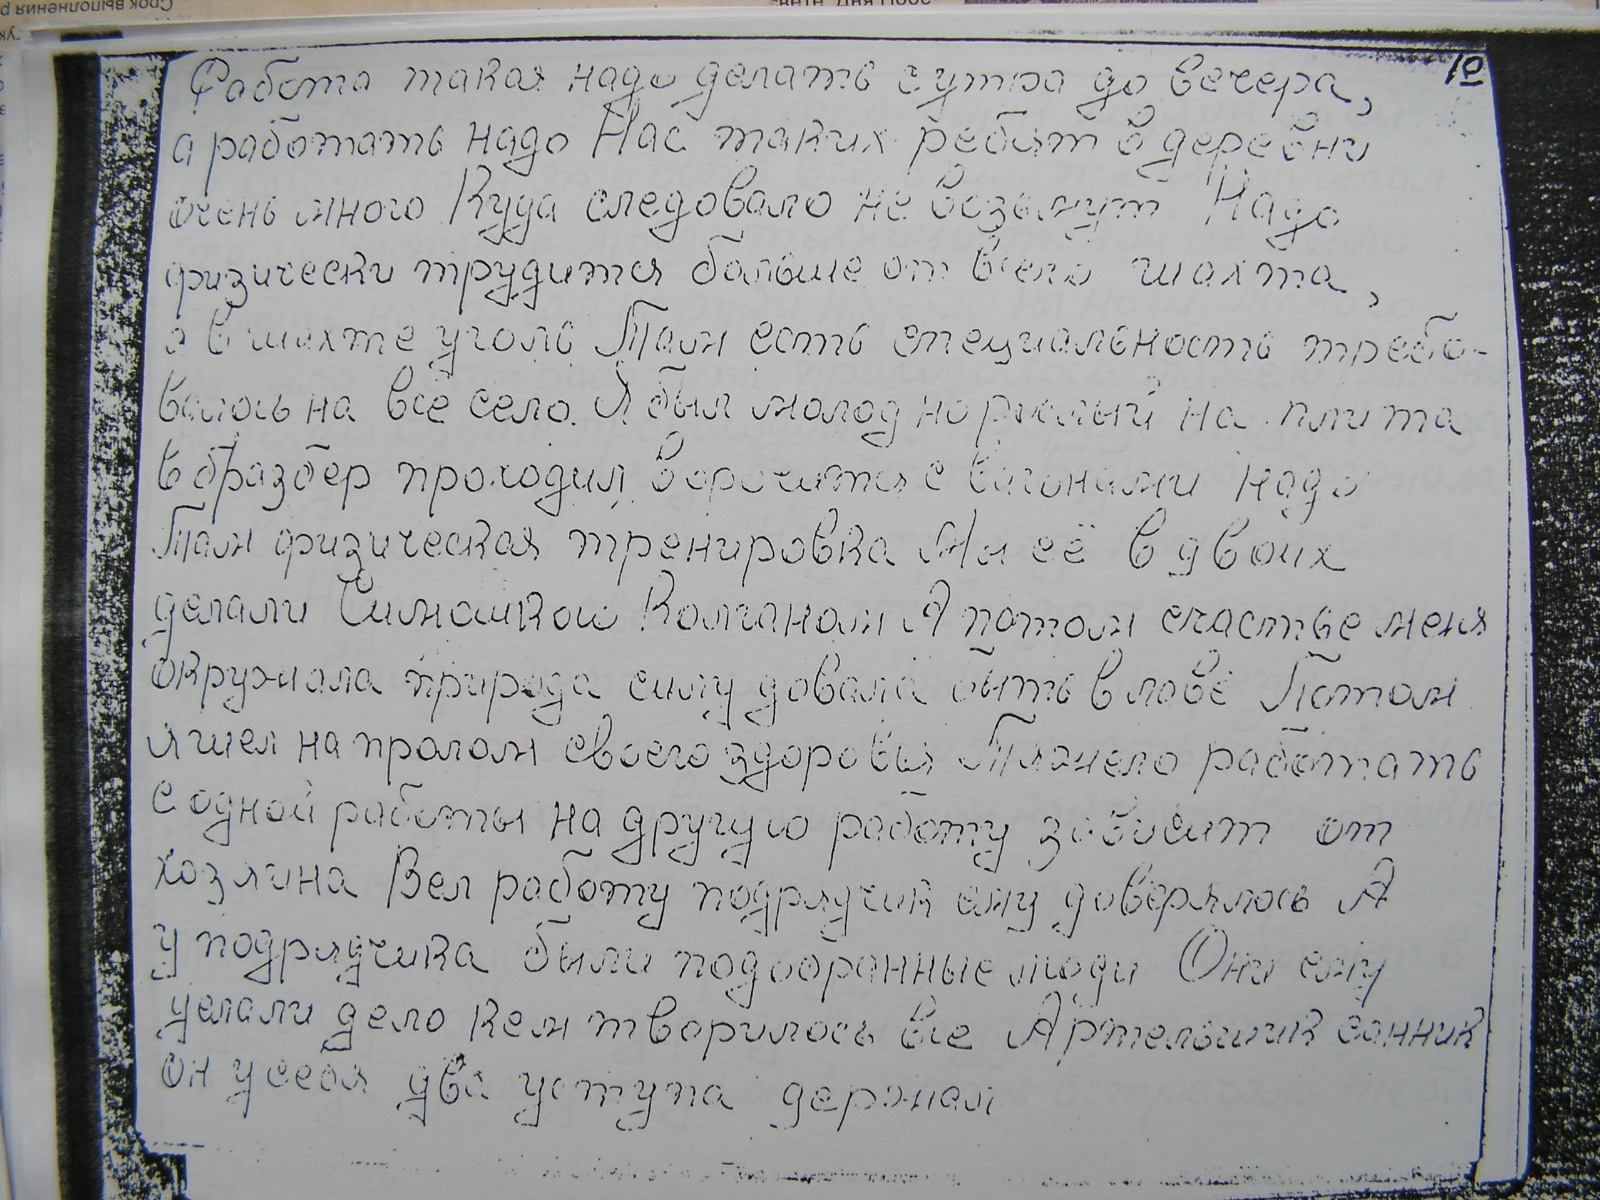 10
Работа такая надо делать с утра до вечера,
а работать надо Нас таких ребят в деревни
очень много Куда следовало не возьмут Надо
физически трудится больше от всего шахта,
а в шахте уголь Там есть специальность требо-
валось на всё село. Я был молод но рослый на плита
в бразбер проходил ворочится с вагонами надо
Там физическая тренировка Мы её в двоих
делали Колчаном А потом счастье меня
окружала природа силу довала быть в лаве Потом
я шел на пролом своего здоровья Тяжело работать
с одной работы на другую работу зависит от
хозяина Вел работу подрядчик ему доверялось А
у подрядчика были подобранные люди Они ему
делали дело кем творилось все Артельщик санник
он у себя два уступа держал